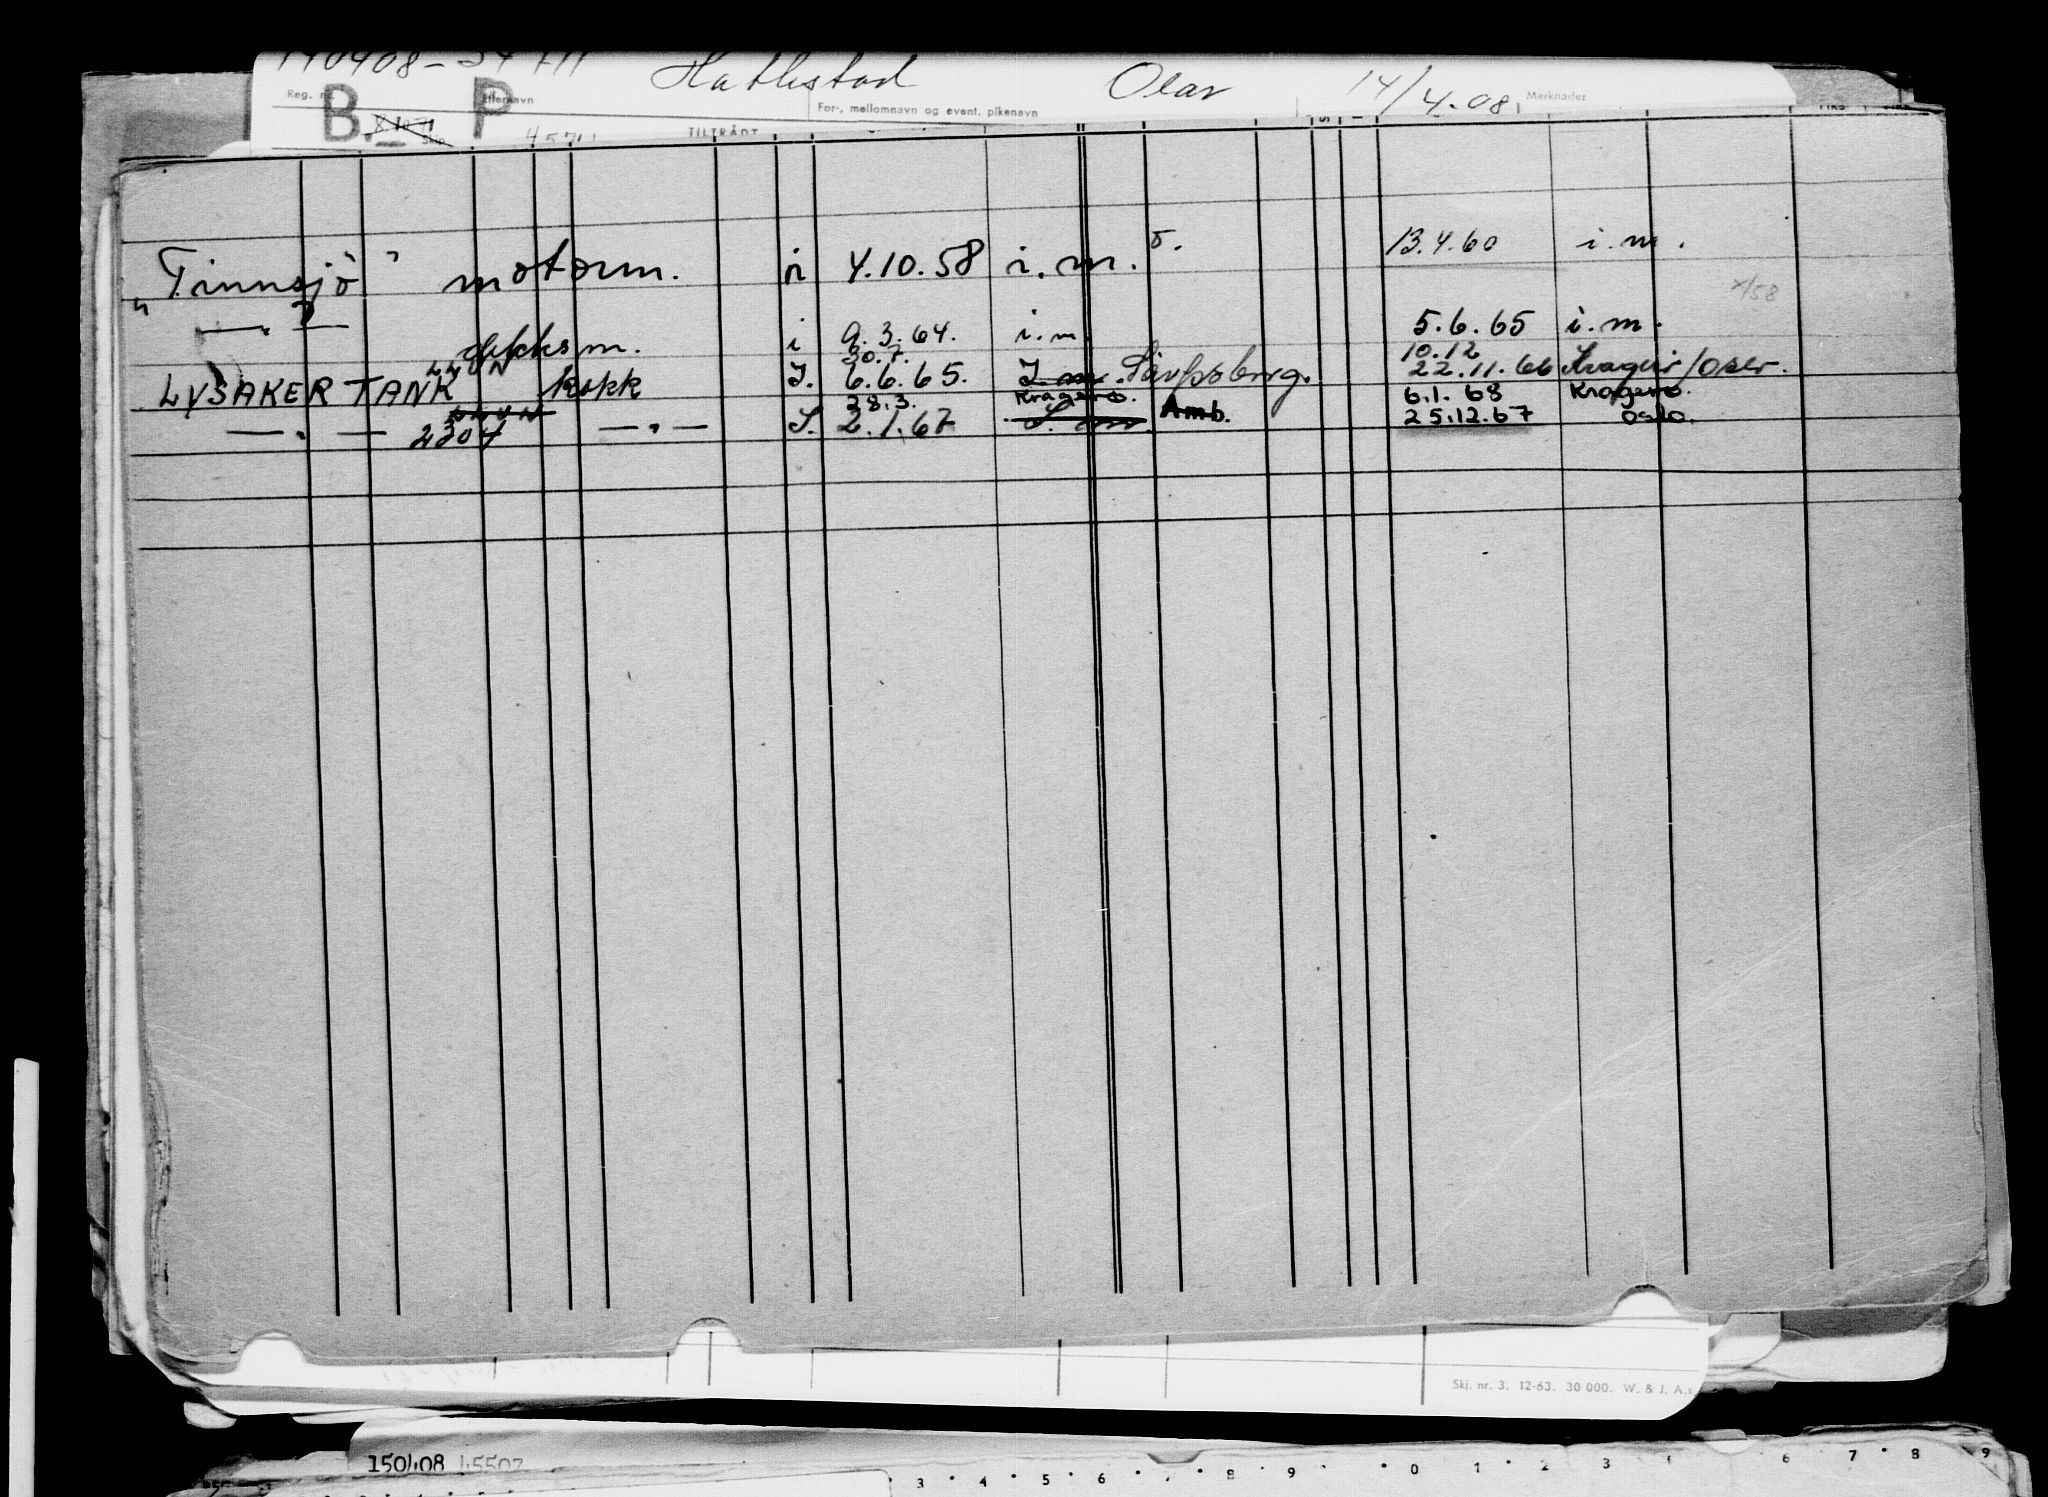 Hatlestad Olav 14/4-08
Reg. nr. Etternavn For-, mellomnavn og event. pikenavn Merknader
B. P
Skip TILTRÅDT
"Tinnsjö" motorm. i 4.10.58 i.m. 13.4.60 i.m.
x/58
— " — dekksm. i 9.3.64. i.m 5.6.65 i.m.
LLQN 30.7. 10.12
LYSAKER TANK kokk I. 6.6.65. I.m. Sarpsborg. 22.11.66 Kragerö/Oslo.
28.3. Kragerö. 6.1.68 Kragerö.
— " — 2304 — " — I. 2.1.67 Amb. 25.12.67 Oslo.
Skj. nr. 3. 12-63. 30 000. W. & J. A.s
150408 45502
3 4 5 6 8 9 0 1 2 3 6 7 8 9